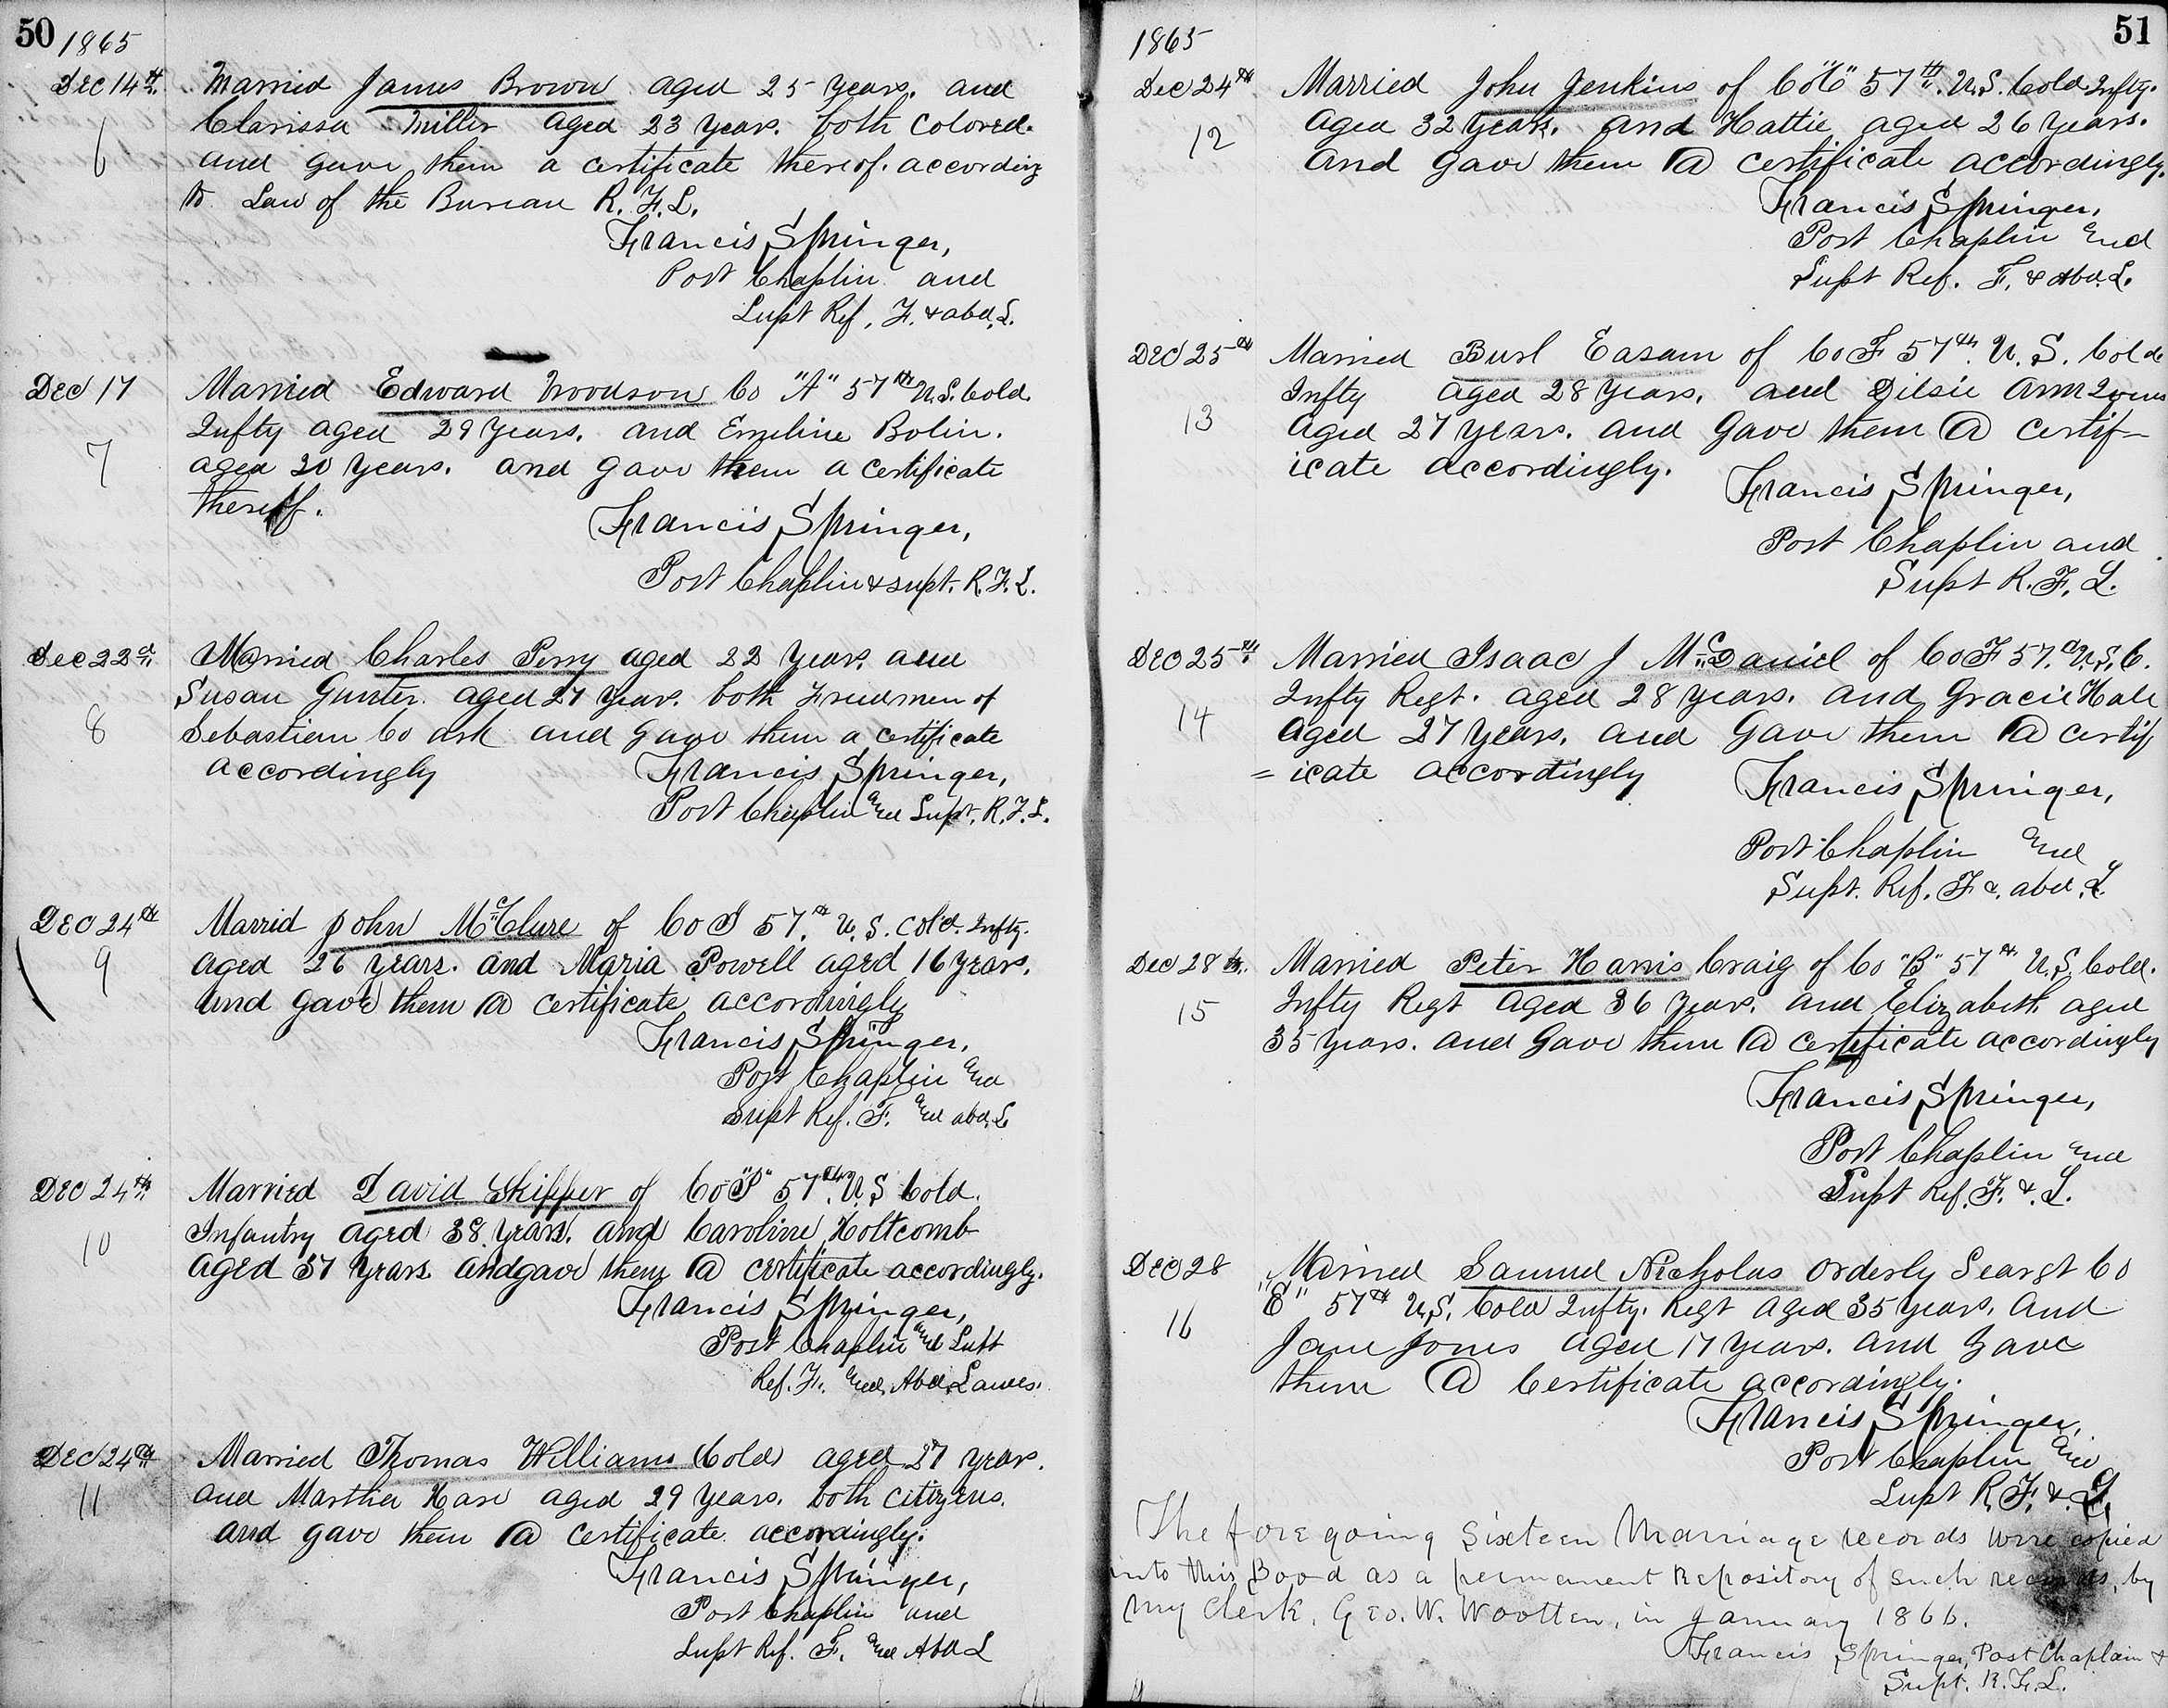 50 1865
Dec 14th Married James Brown aged 25 years. and
6 Clarissa Miller aged 23 years. both colored.
and gave them a certificate thereof. according
to Law of the Bureau R. F. L.
Francis Springer,
Post Chaplin and
Supt Ref, F. & abd, L.
Dec 17 Married Edward Woodson Co "A" 57th U.S. Cold.
Infty aged 29 years. and Emeline Bolin.
7 aged 20 years. and gave them a certificate
thereof.
Francis Springer,
Post Chaplin & supt. R. F. L.
Dec 22d Married Charles Perry aged 22 years and
Susan Gunter. aged 27 years. both Freedmen of
8 Sebastian Co ark and gave them a certificate
accordingly Francis Springer,
Post Chaplin and Supt. R. F. L.
Dec 24th Marrid John McClure of Co I 57th U. S. Cold. Infty.
9 aged 26 years. and Maria Powell aged 16 years.
and gave them a certificate accordingly
Francis Springer,
Post Chaplin and
Supt Ref. F. and abd, L
Dec 24th Married David Skipper of Co "I" 57th U.S Cold.
10 Infantry aged 38 years. and Caroline Holtcomb
aged 37 years and gave them a certificate accordingly.
Francis Springer,
Post Chaplin and Supt
Ref. F. and, Abd, Lawes.
Dec 24th Married Thomas Williams Cold aged 27 years.
11 and Martha Hare aged 29 years. both citizens.
and gave them a certificate accordingly.
Francis Springer,
Post Chaplin and
Supt Ref. F. and Abd L
51
1865
Dec 24th Married John Jenkins of Co "C" 57th. U.S. Cold. Infty.
12 aged 32 years. and Hattie aged 26 years.
and gave them a certificate accordingly.
Francis Springer,
Post Chaplin and
Supt Ref. F. & Abd. L.
Dec 25th Married Burl Easam of Co F 57th. U. S. Cold
Infty aged 28 years. and Dilsie Ann
13 aged 27 years. and gave them a certif-
icate accordingly.
Francis Springer,
Post Chaplin and
Supt R. F. L.
Dec 25th Married Isaac J McDaniel of Co F 57. U.S. C.
Infty Regt. aged 28 years. and Gracie Hale
14 aged 27 years. and gave them a certif
=icate accordingly
Francis Springer,
Post Chaplin and
Supt. Ref. F &. abd. L
Dec 28th. Married Peter Harris Craig of Co "B" 57th U.S. Cold.
15 Infty Regt aged 36 years. and Elizabeth aged
35 years. and gave them a certificate accordingly
Francis Springer,
Post Chaplin and
Supt Ref. F. &. L.
Dec 28 Married Samuel Nicholas Orderly Seargt Co
"E" 57th U.S. Cold Infty. Regt aged 35 years. and
16 Jane Jones aged 17 years. and gave
them a Certificate accordingly.
Francis Springer,
Post Chaplin and
Supt R, F, &. L,
The foregoing sixteen Marriage records were copied
into this Book as a permanent Repository of such records, by
my clerk, Geo. W. Wootten, in January 1866.
Francis Springer, Post Chaplain &
Supt. R. F. L.